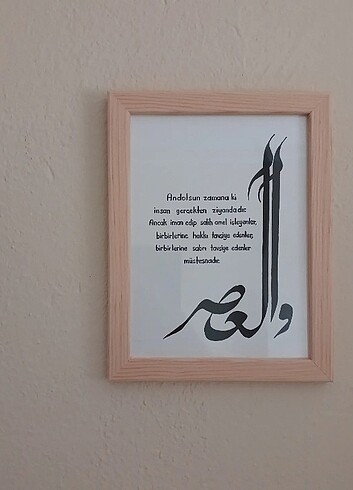 Andolsun zamana ki
insan gerçekten ziyandadır
Ancak iman edip salih amel işleyenler,
birbirlerine hakkı tavsiye edenler,
birbirlerine sabrı tavsiye edenler
müstesnadır
والعصر